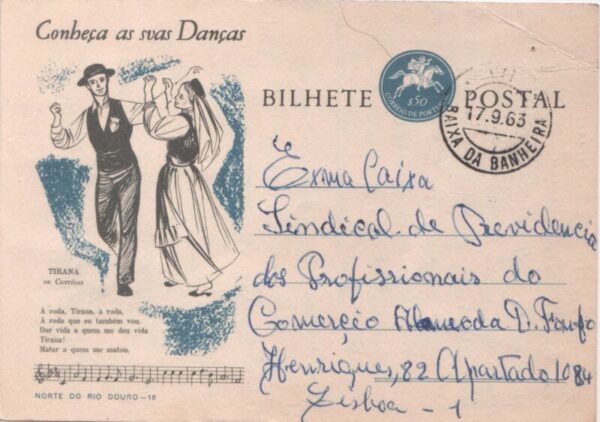 Conheça as svas Danças
BILHETE POSTAL
$50
CORREIO DE PORTUGAL
17.9.63
BAIXA DA BANHEIRA
Exma Caixa
Sindical de Previdencia
dos Profissionais do
Comercio Alameda D. Fonfo
Henriques, 82 Apartado 1084
Lisboa - 1
TIRANA
DE CUSTÓIAS
À roda, Tirana, à roda,
À roda que eu também vou.
Dar vida a quem me deu vida
Tirana!
Matar a quem me matou.
NORTE DO RIO DOURO - 16